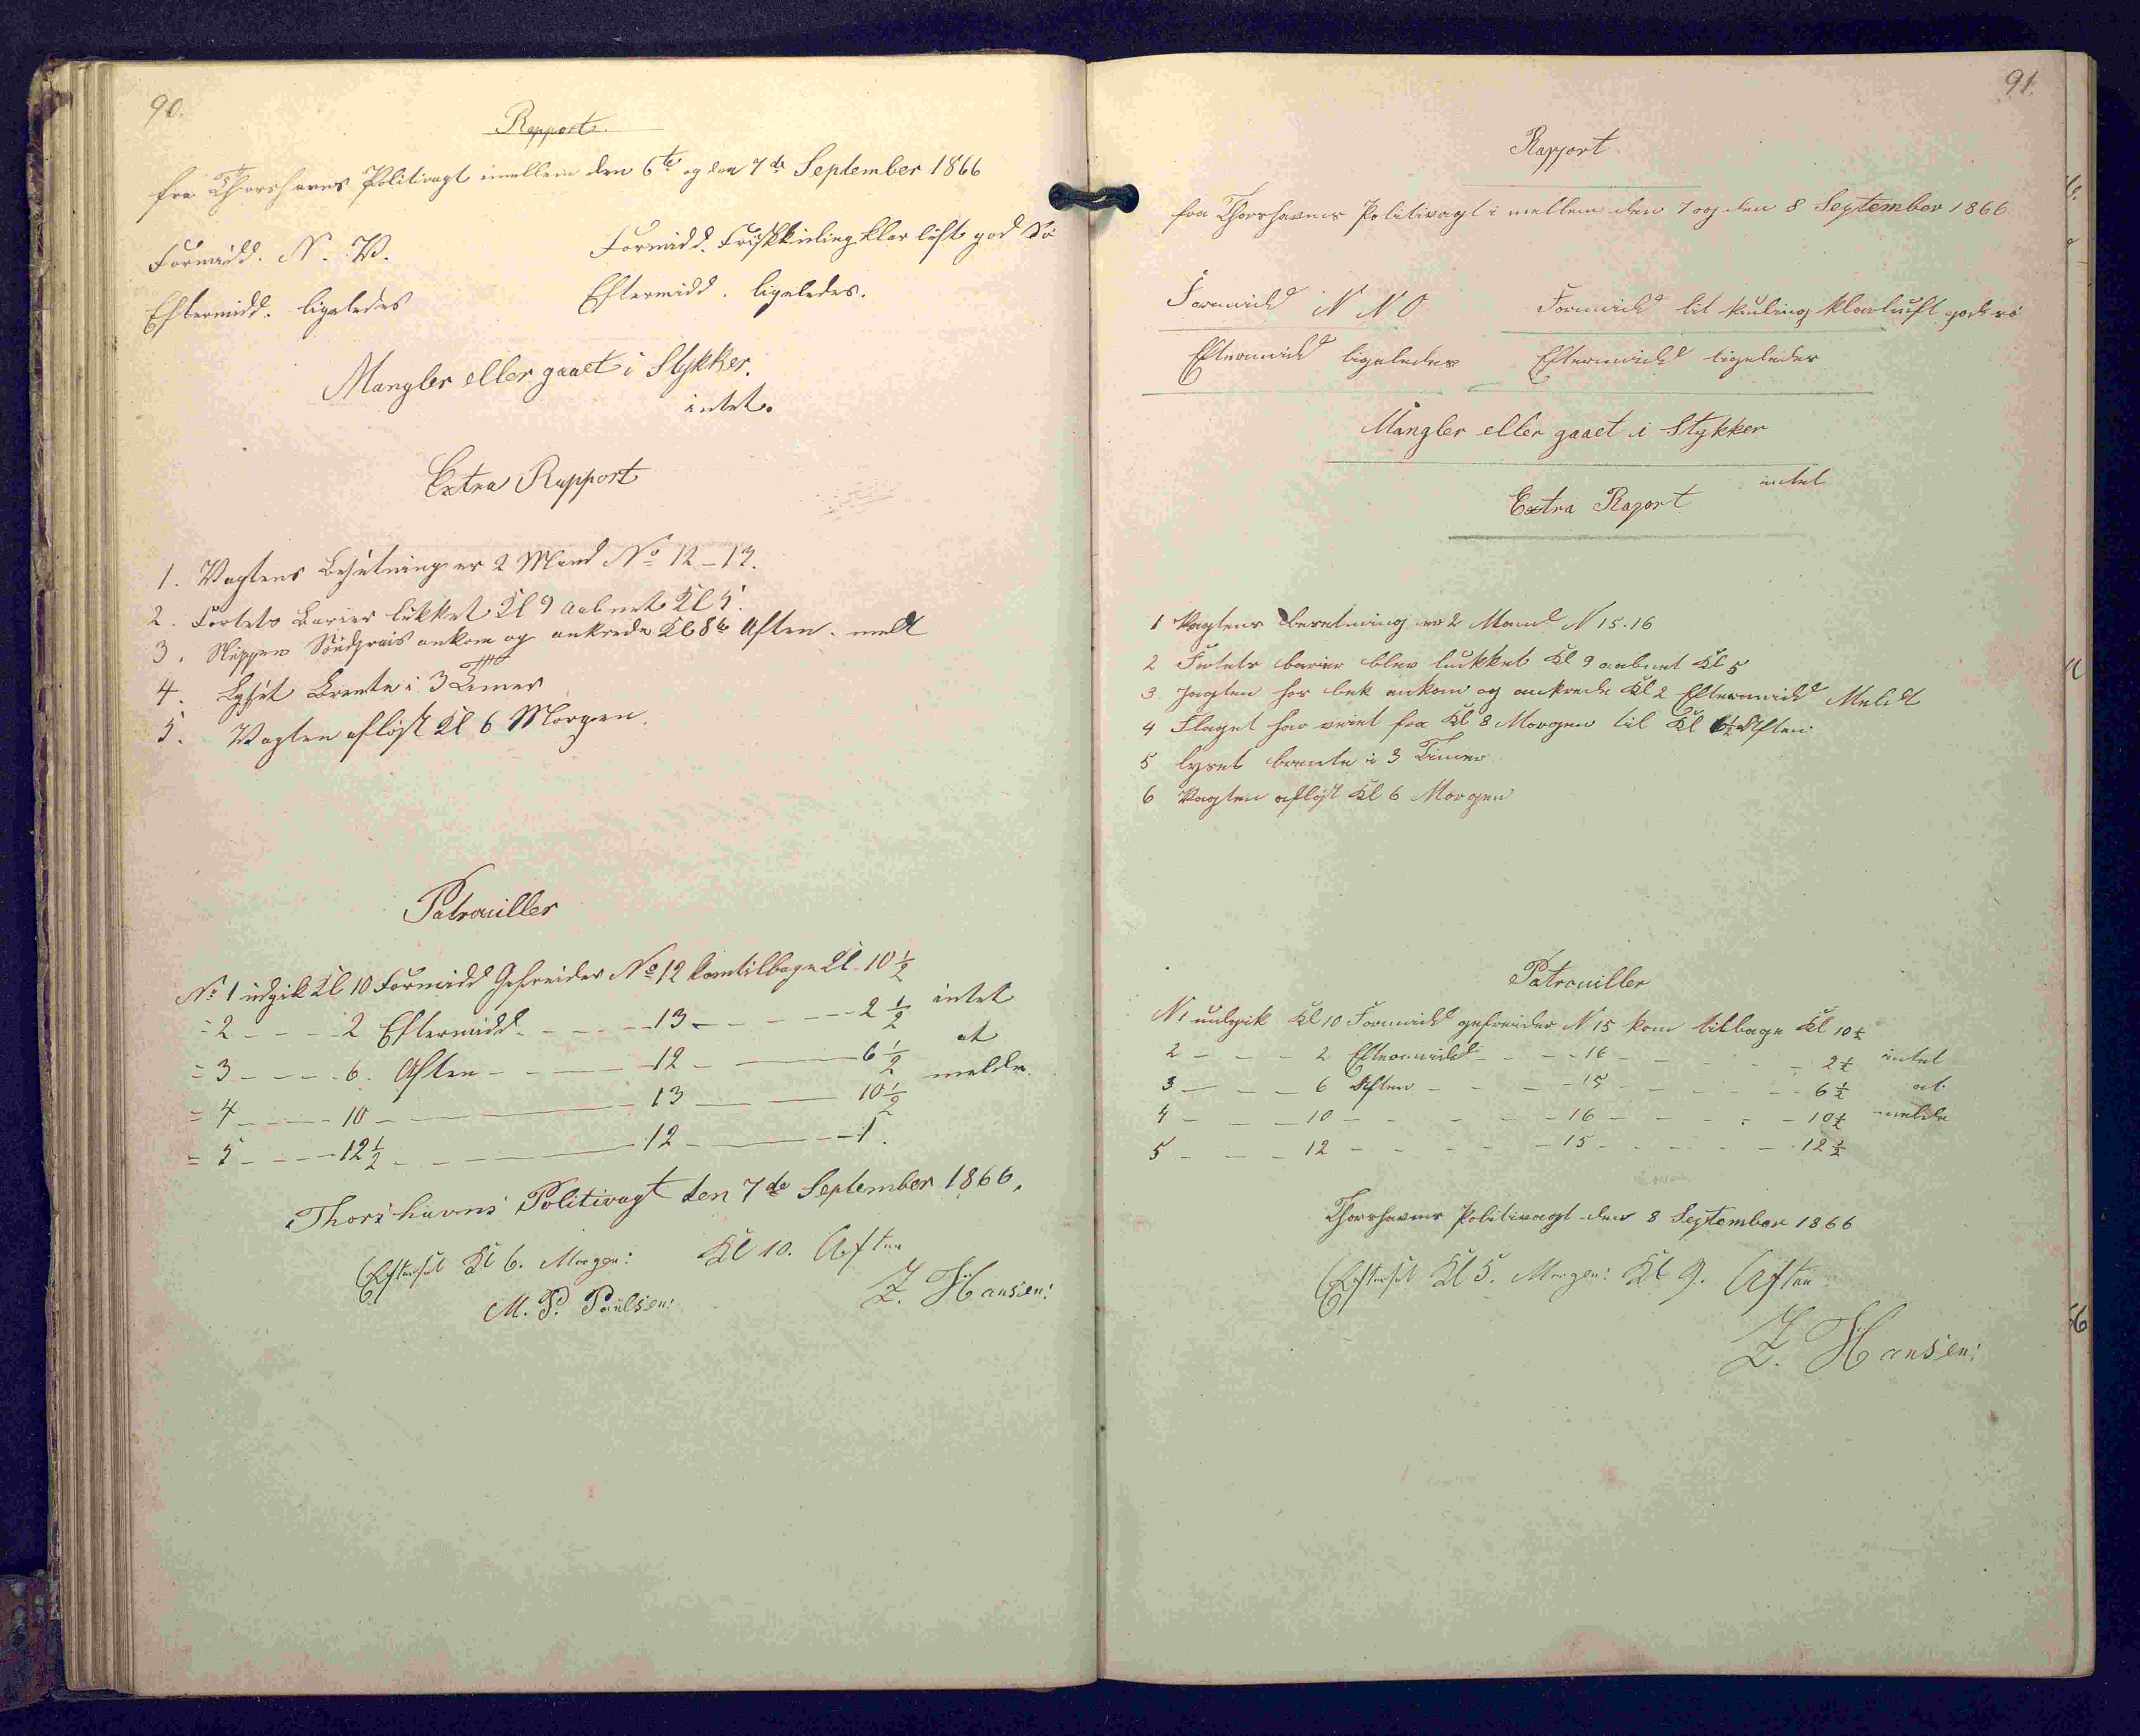 90.
Rapport
fra Thorshavns Politivagt imellem den 6te og den 7de September 1866
Formidd. N. V. Formidd. Friskkuling klar luft god Sö
Eftermidd. ligeledes Eftermidd. ligeledes.
Mangler eller gaaet i Stykker.
intet.
Extra Rapport
1. Vagtens Besetning er 2 Mand No 12-13.
2. Fortets Barier lukket Kl 9 aabnet Kl 5.
3. Skippen ankom og ankrede Kl 8 te Aften. meldt
4. Lyset Brente i 3 Timer
5. Vagten aflöst Kl 6 Morgen.
Patrouiller
No 1 udgik Kl 10 Formidd Gefreider No 12 kom tilbage Kl. 10 1/2
= 2 - - - 2 Eftermidd. - - - 13 - - - 2 1/2 intet
= 3 - - - 6. Aften - - - 12 - - 6 1/2 at
= 4 - - - 10 - - - 13 - - 10 1/2 melde.
= 5 - - - 12 1/2 - - - 12 - - - 1.
Thorshavns Politivagt den 7de September 1866.
Efterset Kl 6. Morgen: Kl 10. Aften
M. P. Poulsen: Z. Hansen:
91.
Rapport
fra Thorshavns Politivagt i mellem den 7 og den 8 September 1866
Formidd N N O Formidd lit kuling klarluft god sö
Eftermidd ligeledes Eftermidd ligeledes
Mangler eller gaaet i Stykker
intet
Extra Raport
1 Vagtens besetning er 2 Mand N 15.16
2 Fortets barier blev luckket Kl 9 aabnet Kl 5
3 Jagten ankom og ankrede Kl 2 Eftermidd Meldt
4 Flaget har veiet fra Kl 8 Morgen til Kl 6 1/2 Aften
5 lyset brente i 3 Timer
6 Vagten aflöst Kl 6 Morgen
Patrouiller
N 1 undgik Kl 10 Formidd gefreider N 15 kom tilbage Kl 10 1/2
2 - - - 2 Eftermidd - - - 16 - - - 2 1/2 intet
3 - - - 6 Aften - - - 15 - - - 6 1/2 at
4 - - - 10 - - - 16 - - - 10 1/2 melde
5 - - - 12 - - - 15 - - - 12 1/2
Thorshavns Politivagt den 8 September 1866
Efterset Kl 5. Morgen: Kl 9. Aften
Z. Hansen: